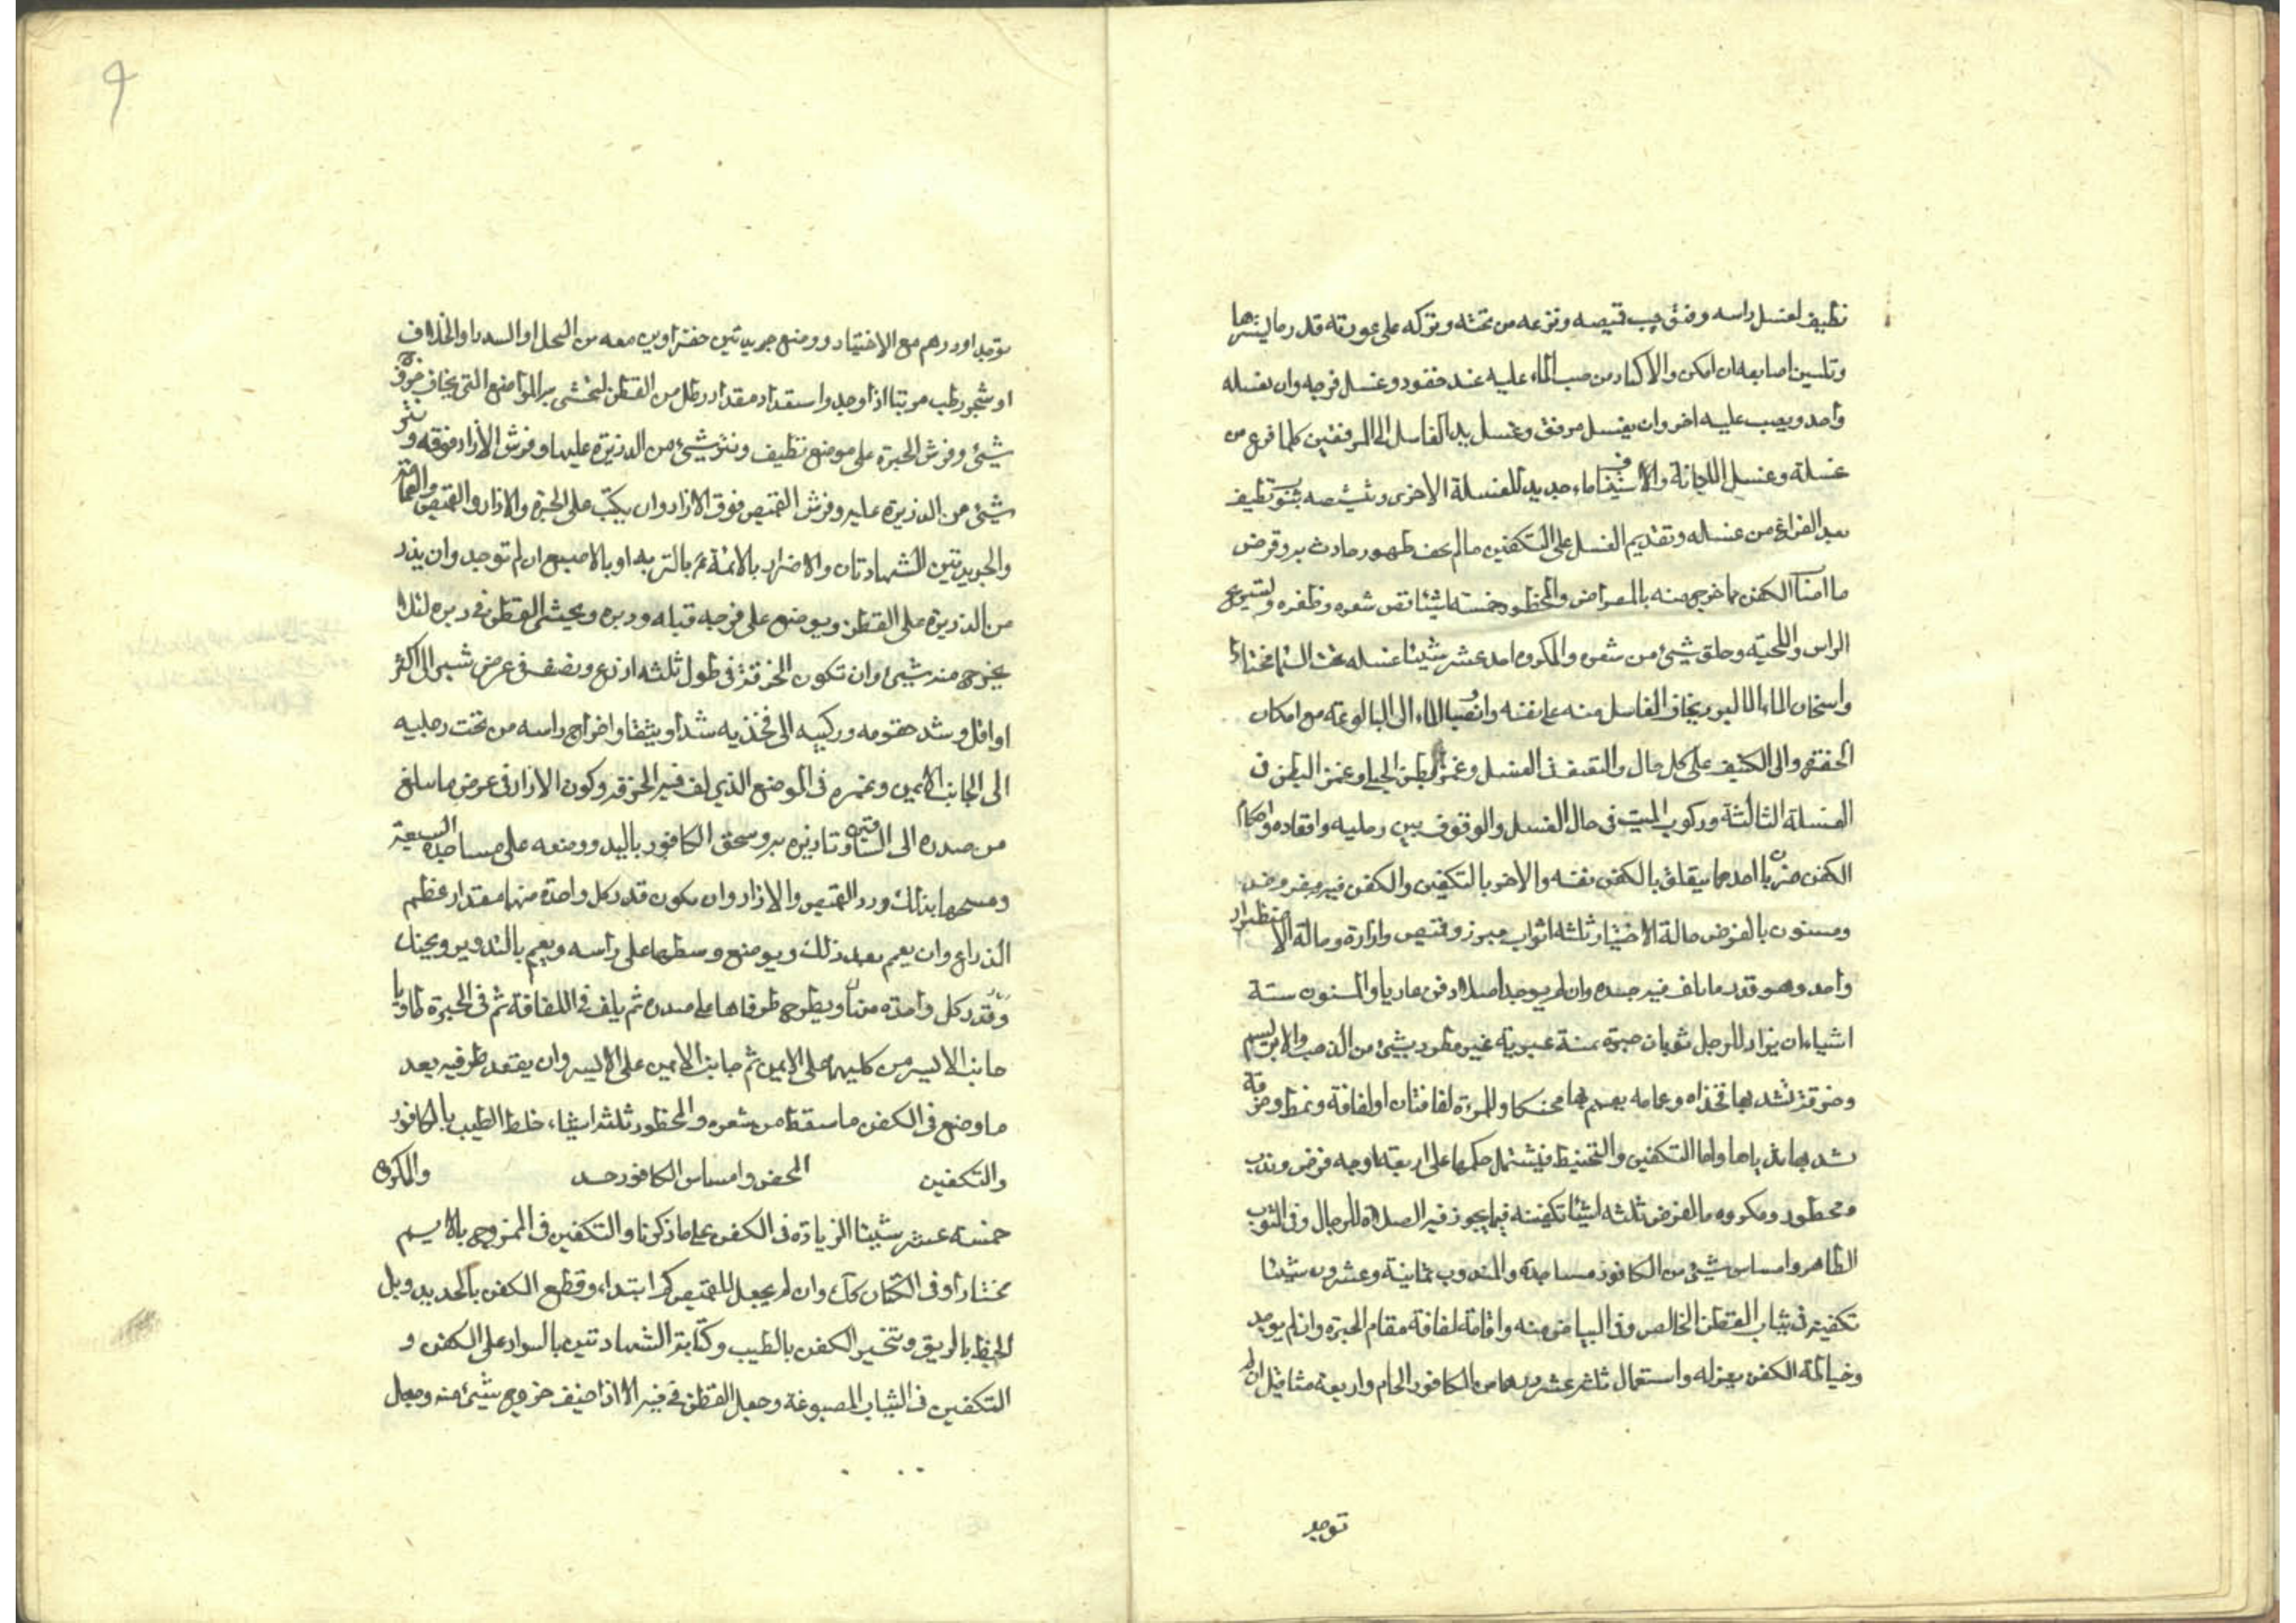 نظيف لغسل راسه وفتق جيب قميصه ونزعه من تحته وتركه على عورته قدر ما يسترها
وتلسين اصابعه ان امكن والاكثار من صب الماء عليه عند حقوه وغسل فرجه وان يغسله
واحد ويصب عليه اخر وان يغسل برفق وغسل يد الغاسل الى المرفقين كلما فرغ من
غسلة وغسل الاجانة والاستيناف ماء جديد للغسلة الاخرى وتنشيفه بثوب نظيف
بعد الفراغ من غسله وتقديم الغسل على التكفين ما لم يخف ظهور حادث به وقرض
ما اصاب الكفن مما خرج منه بالمقراض والمحظور خمسة اشيا قص شعره وظفره وتسريح
الراس واللحية وحلق شيئ من شعره والمكروه احد عشر شيئا غسله تحت السما مختارا
واسخان الماء الا لبرد يخاف الغاسل منه على نفسه وانصباب الماء الى البالوعة مع امكان
الحفيرة والى الكنيف على كل حال والتعنيف فى الغسل وغمز بطن الحبلى وغمز البطن فى
الغسلة الثالثة وركوب الميت فى حال الغسل والوقوف بين رجليه واقعاده واحكام
الكفن ضربان احدهما يتعلق بالكفن نفسه والاخر بالتكفين والكفن فيه مفروض
ومسنون بالفرض حالة الاختيار ثلثة اثواب ميزر وقميص وازارة وحالة الاضطرار
واحد وهو قدر ما يلف فيه جسده وان لم يوجد اصلا دفن عاريا والمسنون ستة
اشياء ان يزاد للرجل ثوبان حبرة يمنة عبرية غير مطرز بشيئ من الذهب والابريسم
وخرقة تشد بها فخذاه وعمامة يعمم بها محنكا وللمرءة لفافتان او لفافة ونمط وخرقة
تشد بها ثدياها واما التكفين والتحنيط فيشتمل حكمها على اربعة اوجه فرض وندب
ومحظور ومكروه فالفرض ثلثة اشيا تكفينه فيما يجوز فيه الصلاة للرجال وفى الثوب
الطاهر وامساس شيئ من الكافور مساجده والمندوب ثمانية وعشرون شيئا
تكفينه فى ثياب القطن الخالص وفى البياض منه واقامة لفافة مقام الحبرة وان لم يوجد
وخياطة الكفن بغزله واستعمال ثلثة عشر درهما من الكافور الخام واربعة مثاقيل ان لم
توجد
توجد او درهم مع الاختيار ووضع جريدتين خضراوين معه من النخل او السدر او الخلاف
او شجر رطب مرتبا اذا وجد واستعداد مقدار رطل من القطن ليحشى به المواضع التى يخاف خروج
شيئ وفرش الحبرة على موضع نظيف ونثر شيئ من الذريرة عليها وفرش الازار فوقه ونثر
شيئ من الذريرة عليه وفرش القميص فوق الازار وان يكتب على الحبرة والازار والقميص والعمامة
والجريدتين الشهادتان والاقرار بالائمة ع بالتربة او بالاصبع ان لم توجد وان يذر
من الذريرة على القطن ويوضع على فرجه قبله ودبره ويحشى القطن فى دبره لئلا
يخرج منه شيئ وان تكون الخرقة فى طول ثلثة اذرع ونصف فى عرض شبر الى اكثر
او اقل وشد حقويه وركبيه الى فخذيه شدا وثيقا واخراج راسه من تحت رجليه
الى الجانب الايمن وغمزه فى الموضع الذي لف فيه الخرقة وكون الازار فى عرض ما يبلغ
من صدره الى الساقين وتازيره به وسحق الكافور باليد ووضعه على مساجده السبعة
ومسحها بذلك ورد القميص والازار وان يكون قدر كل واحدة منهما مقدار عظم
الذراع وان يعمم بعد ذلك ويوضع وسطها على راسه ويعمم بالتدوير ويحنك
وقدر كل واحدة منها ويطرح طرفاها على صدره ثم يلف فى اللفافة ثم فى الحبرة طاويا
جانب الايسر من كليهما على الايمن ثم جانب الايمن على الايسر وان يعقد طرفيه بعد
ما وضع فى الكفن ما سقط من شعره والمحظور ثلثة اشياء خلط الطيب بالكافور
والتكفين المحض وامساس الكافور حد والمكروه
خمسة عشر شيئا الزيادة فى الكفن على ما ذكرنا والتكفين فى الممزوج بالابريسم
مختارا وفى الكتان كك وان لم يجعل للقميص كم ابتداء وقطع الكفن بالحديد وبل
الخيط بالريق وتبخير الكفن بالطيب وكتابة الشهادتين بالسواد على الكفن و
التكفين فى الثياب المصبوغة وجعل القطن فى فيه الا اذا خيف خروج شيئ منه وجعل